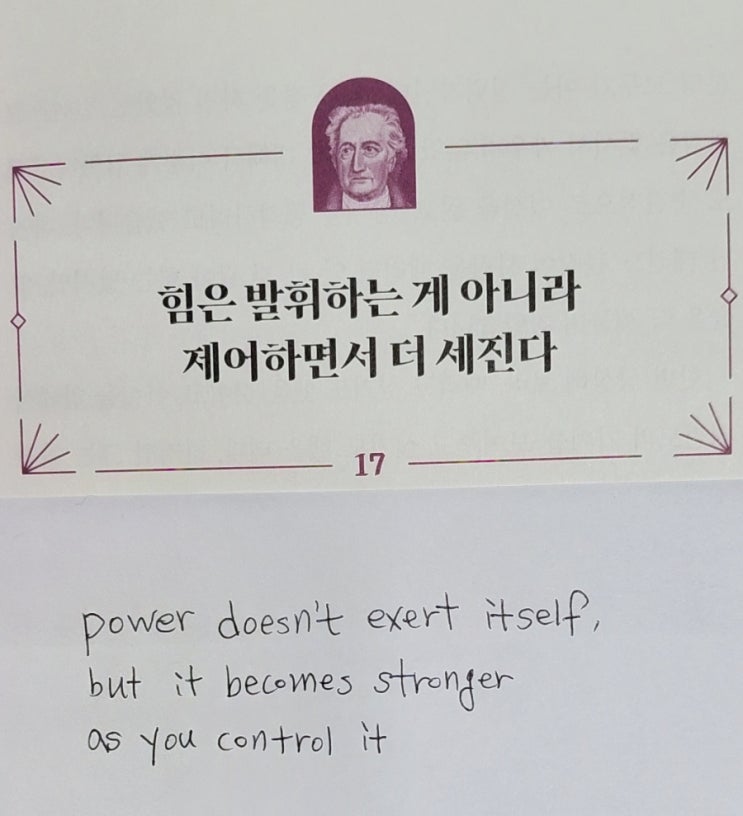 힘은 발휘하는 게 아니라
제어하면서 더 세진다
17
power doesn't exert itself,
but it becomes stronger
as you control it